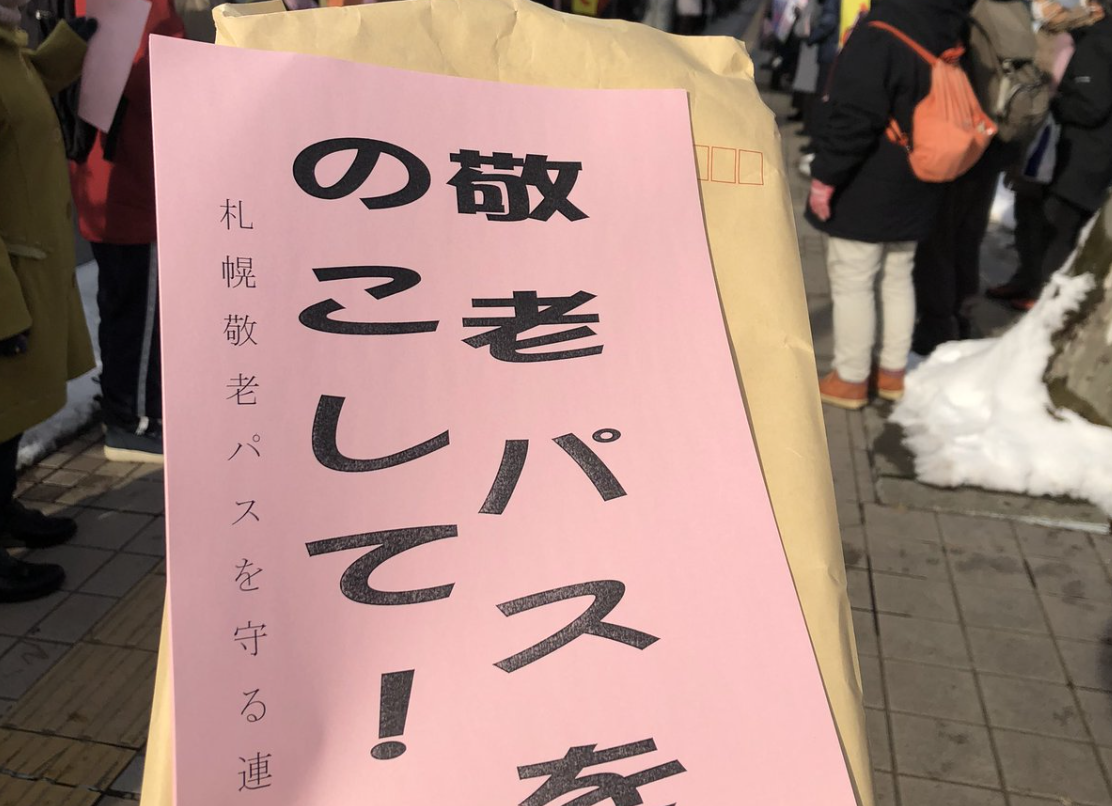 敬老パスを
のこして!
札幌敬老パスを守る連